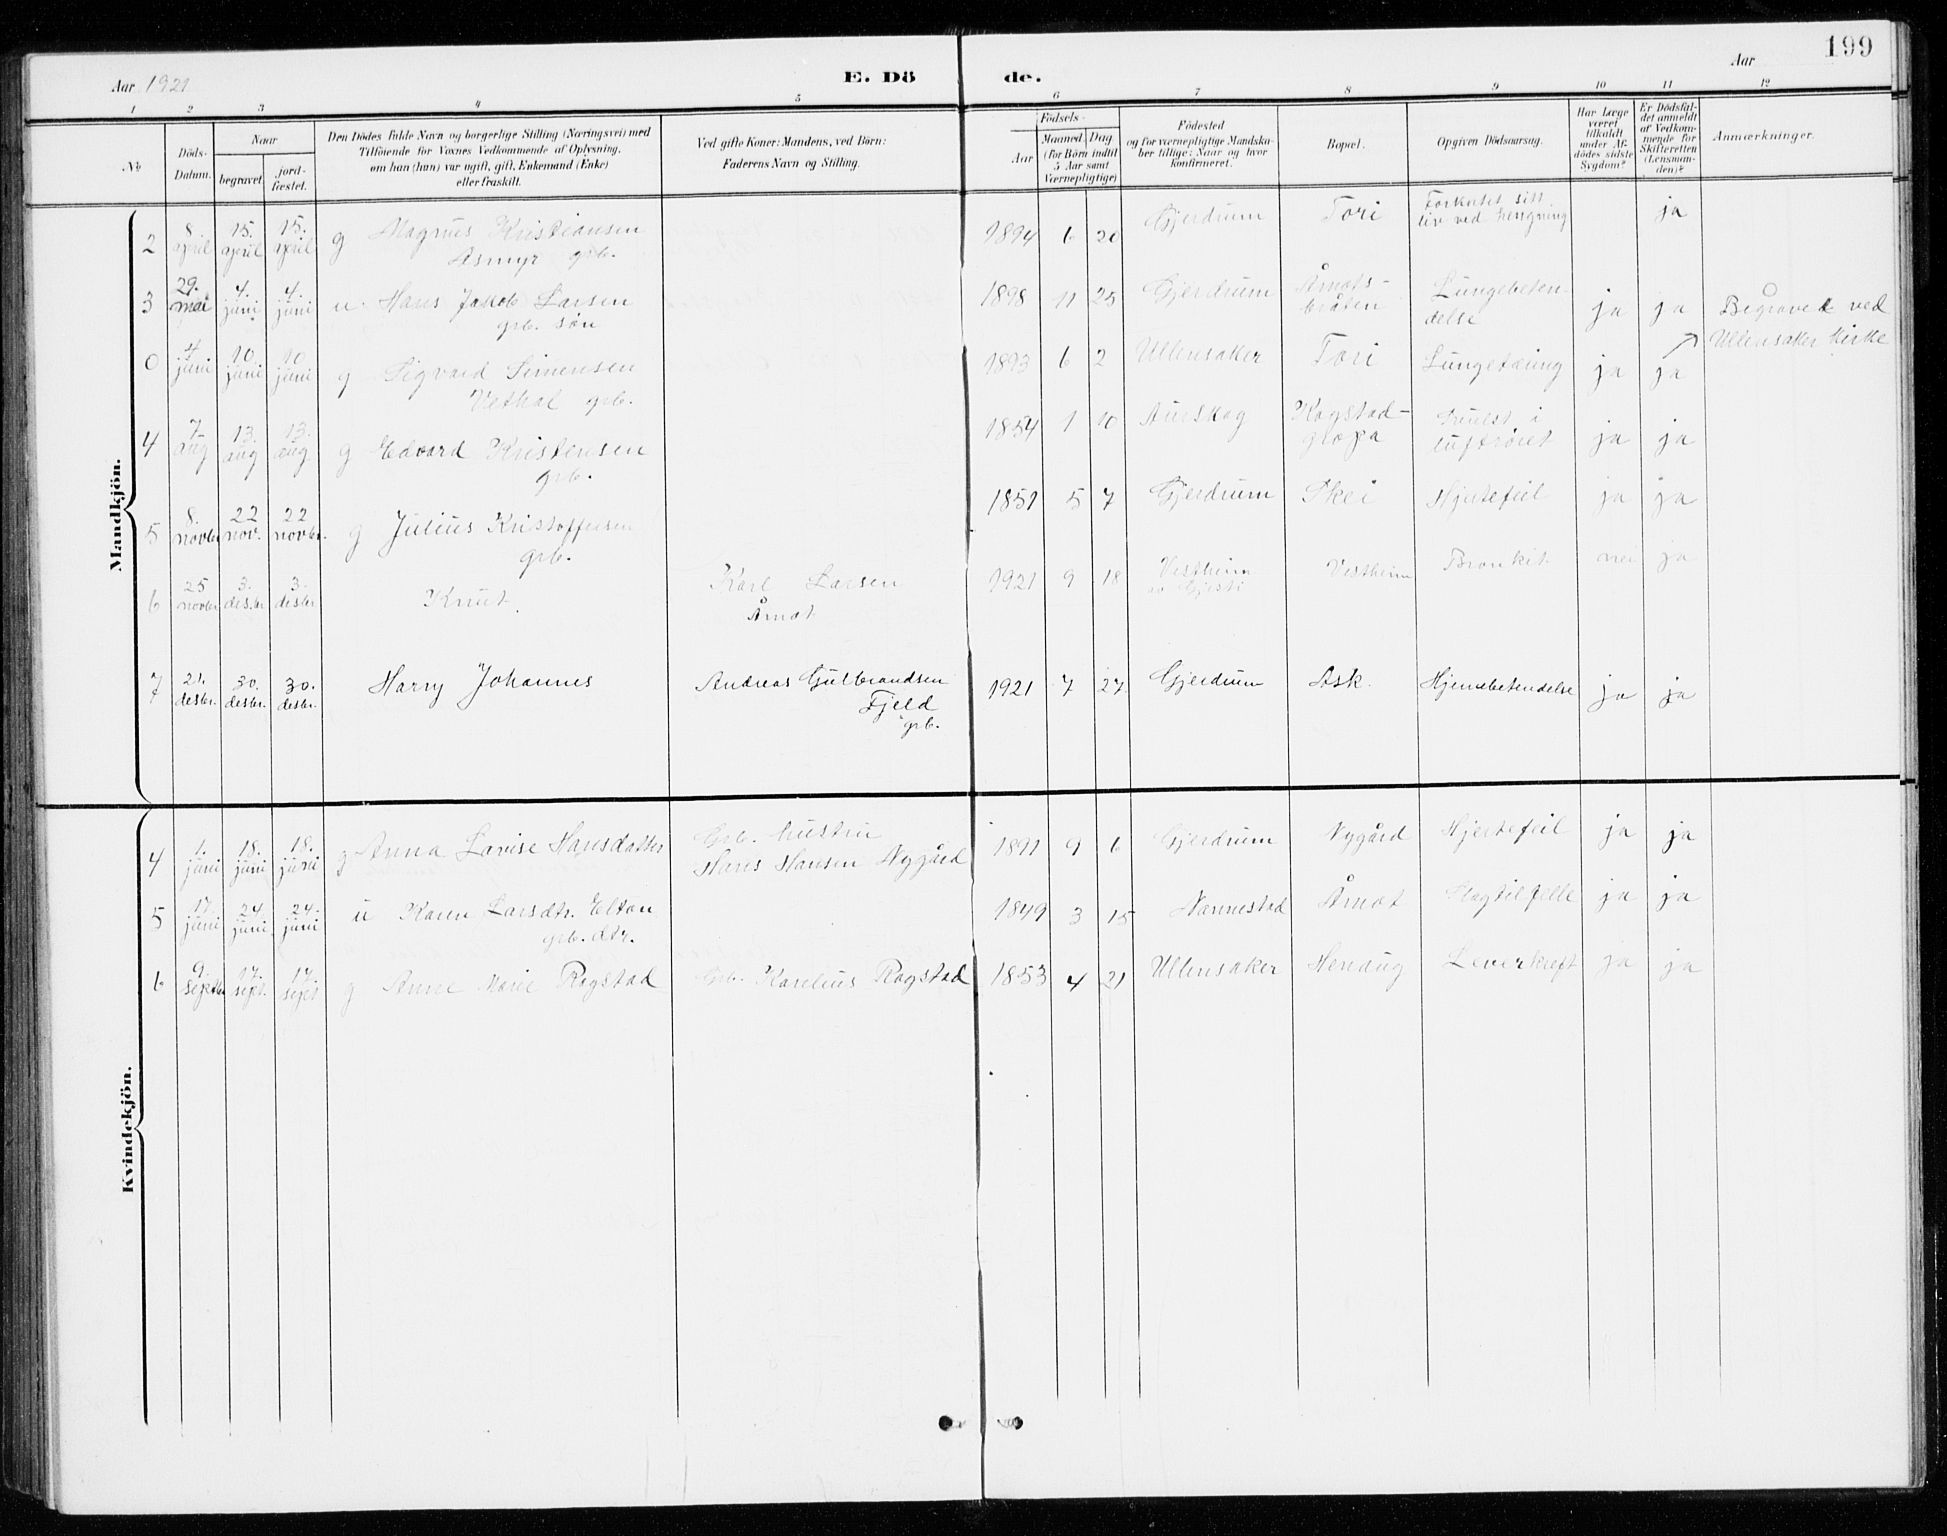 Aar 1921
E. Döde.
Aar
199
1 2 3 4 5 6 7 8 9 10 11 12
No.
Döds-Datum.
Naar
begravet.
jord-fæstet.
Den Dödes fulde Navn og borgerlige Stilling (Næringsvei) med
Tilföiende for Voxnes Vedkommende af Oplysning,
om han (hun) var ugift, gift, Enkemand (Enke)
eller fraskilt.
Ved gifte Koner: Mandens, ved Börn:
Faderens Navn og Stilling.
Födsels-
Aar
Maaned. Dag
(for Börn indtil
5 Aar samt
Værnepligtige)
Födested
og for værnepligtige Mandska-
ber tillige: Naar og hvor
konfirmeret.
Bopæl.
Opgiven Dödsaarsag.
Har Læge
været
tilkaldt
under Af-
dödes sidste
Sygdom?
Er Dödsfal-
det anmeldt
af Vedkom-
mende for
Skifteretten
(Lensman-
den)?
Anmærkninger.
Mandkjön.
2 8. april 15. april 15. april g Magnus Kristiansen
Asmyr grb.
1894 6 20 Gjerdrum Tori Forkortet sitt
liv ved hengning ja
3 29. mai 4. juni 4. juni u Hans Jakob Larsen
grb. søn
1898 11 25 Gjerdrum Årnots-
bråten Lungebeten-
delse ja ja Begravet ved
Ullensaker kirke
0 4 juni 10. juni 10 juni g Sigvard Simensen
Vethal grb.
1893 6 2 Ullensaker Tori Lungetæring ja ja
4 7. aug 13. aug 13. aug g Edvard Kristensen
grb.
1854 1 10 Aurskog Rogstad-
gropa Svulst i
luftrøret ja ja
5 8. novbr 22 nov. 22 novbr. g Julius Kristoffersen
grb.
1851 5 7 Gjerdrum Skei Hjertefeil ja ja
6 25 novbr 3. desbr 3. desbr Knut Karl Larsen
Årnot
1921 9 18 Vestheim
av Gjesti Vestheim Bronkit nei ja
7 21. desbr. 30. desbr. 30. desbr. Harry Johannes Andreas Gulbrandsen
Fjeld
grb.
1921 7 27 Gjerdrum Ask. Hjernebetendelse ja ja
Kvindekjön.
4 1. juni 18. juni 18. juni g Anna Lovise Hansdatter Grb. hustru
Hans Hansen Nygård
1891 9 6 Gjerdrum Nygård Hjertefeil ja ja
5 17. juni 24. juni 24. juni u Karen Larsdtr. Elton
grb. dtr.
1849 3 15 Nannestad Årnot Slagtilfelle ja ja
6 9. septbr 17. sept. 17. sept g Anne Marie Rogstad Grb. Karelius Rogstad 1853 4 21 Ullensaker Herdug Leverkreft ja ja